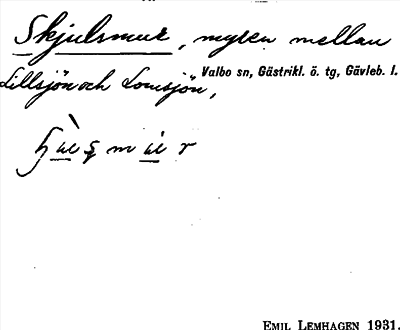 Skjulsmur, myren mellan
Lillsjön och Lomsjön,
Valbo sn, Gästrikl. ö. tg, Gävleb. l.
EMIL LEMHAGEN 1931.